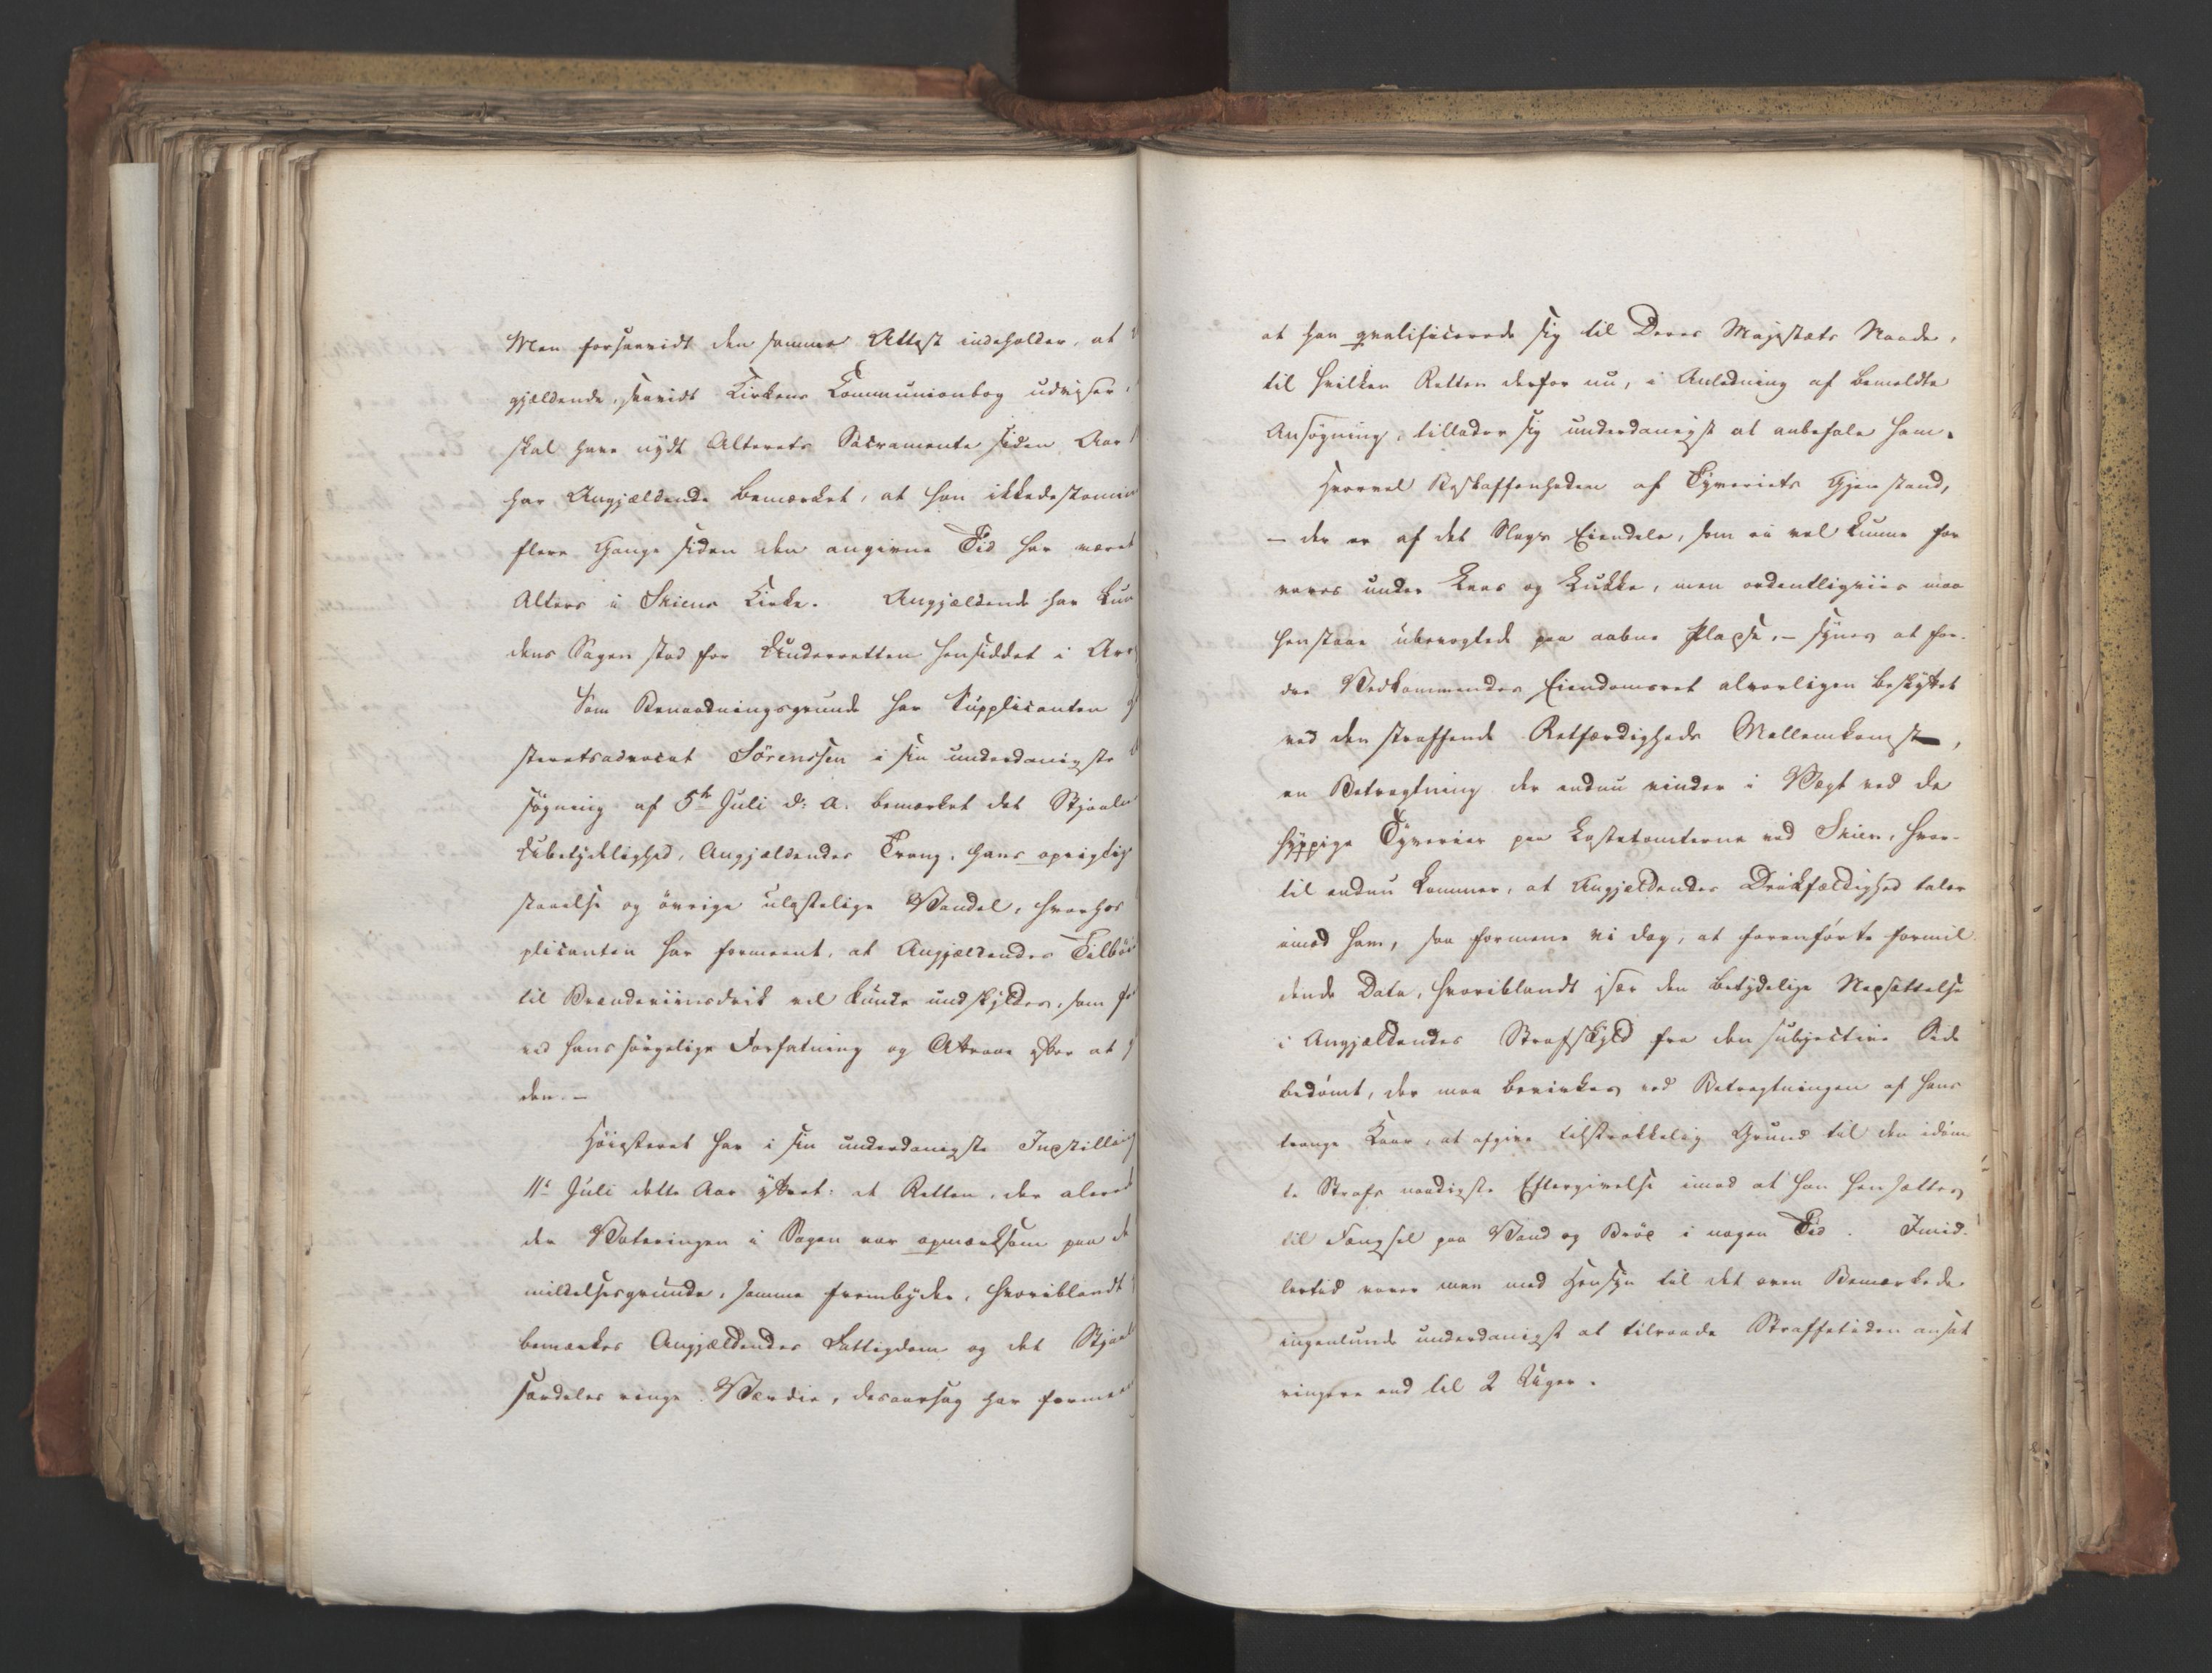 Men forsaavidt den samme Attest indeholder, at
gjældende, saavidt Kirkens Communionbog udviser,
skal have nydt Alterets Sacramente siden Aar
har Angjældende bemærket, at han ikkedestomin
flere Gange siden den angivne Tid har været
Alters i Skiens Kirke. Angjældende har kun
dens Sagen stod for Underretten hensiddet i Arr
Som Benaadningsgrunde har Supplicanten
steretsadvocat Sörenssen i sin underdanigste
søgning af 5te Juli d: A. bemærket det Stjaalne
Ubetydelighed, Angjældendes Trang, hans oprigtig
staaelse og övrige ulastelige Vandel, hvorhos
plicanten har formeent, at Angjældendes Tilböi
til Brændeviinsdrik vel kunde undskyldes, som
ved hans sørgelige Forfatning og Attraae efter at
den. –
Høiesteret har i sin underdanigste Indstilling
11te Juli dette Aar yttret: at Retten, der alered
der Voteringen i Sagen var opmærksom paa de
mildelsesgrunde, samme frembyder, hvoriblandt
bemærkes Angjældendes Fattigdom og det Stjaal
særdeles ringe Værdie, desaarsag har formeent
at han qvalificerede sig til Deres Majestæts Naade,
til hvilken Retten derfor nu, i Anledning af bemeldte
Ansøgning, tillader sig underdanigst at anbefale ham.
Hvorvel Beskaffenheden af Tyveriets Gjenstand,
– der er af det Slags Eiendele, som ei vel kunne for
vares under Laas og Lukke, men ordentligviis maa
henstaae ubevogtede paa aabne Pladse, – synes at for-
dre Vedkommendes Eiendomsret alvorligen beskyttet
ved den straffende Retfærdigheds Mellemkomst,
en Betragtning der endnu vinder i Vægt ved de
hyppige Tyverier paa Lastetomterne ved Skien, hvor-
til endnu kommer, at Angjældendes Drikfældighed taler
imod ham, saa formene vi dog, at foranførte formil
dende Data, hvoriblandt især den betydelige Nedsættelse
i Angjældendes Strafskyld fra den subjective Side
bedømt, der maa bevirkes ved Betragtningen af hans
trange Kaar, at afgive tilstrækkelig Grund til den idøm
te Strafs naadigste Eftergivelse imod at han hensættes
til Fængsel paa Vand og Brød i nogen Tid. Imid-
lertid vover man med Hensyn til det oven Bemærkede
ingenlunde underdanigst at tilraade Straffetiden ansat
ringere end til 2 Uger.